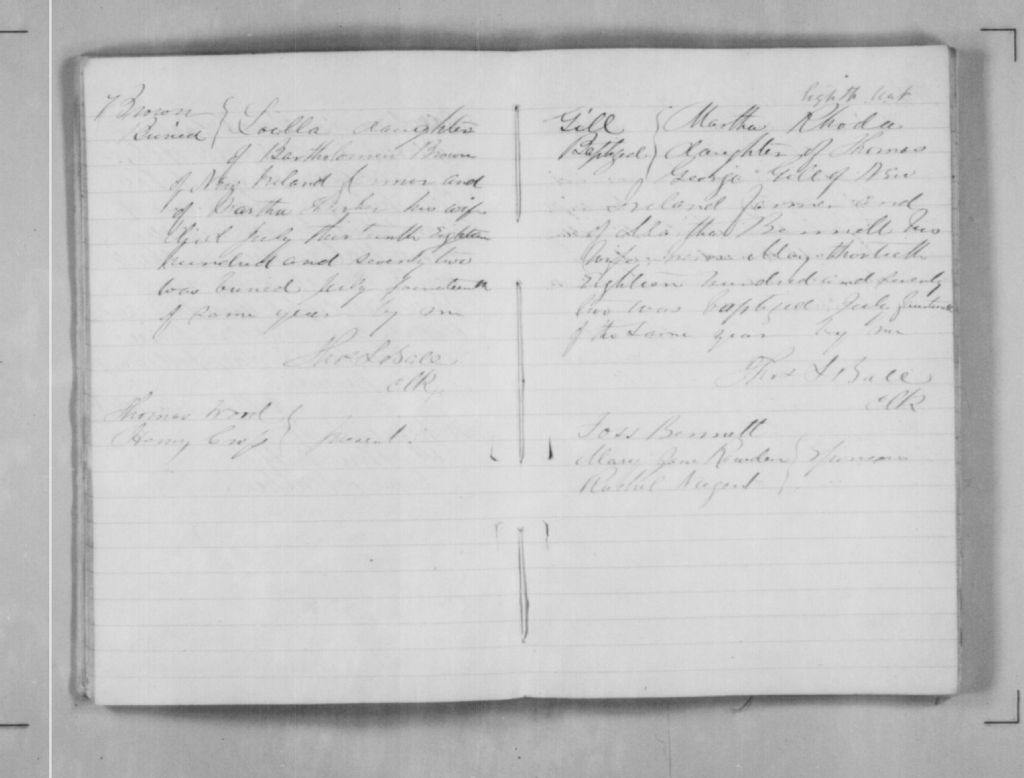 Brown
Buried
Loella daughter
of Bartholomew Brown
of New Ireland farmer and
of Martha his wife
died July thirteenth Eighteen
hundred and seventy two
was buried July fourteenth
of same year by me
Thos S Ball
Clk
Thomas Wood
Henry Cross
present
Eighth
Gill
Baptized
Martha Rhoda
daughter of Thomas
George Gill of New
Ireland farmer and
of Bennett his
wife May thirtieth
Eighteen hundred and seventy
two was baptized July fourteenth
of the same year by me
Thos S Ball
Clk
Joss Bennett
Mary Jane Rowden
Rachel Nugent
Sponsors